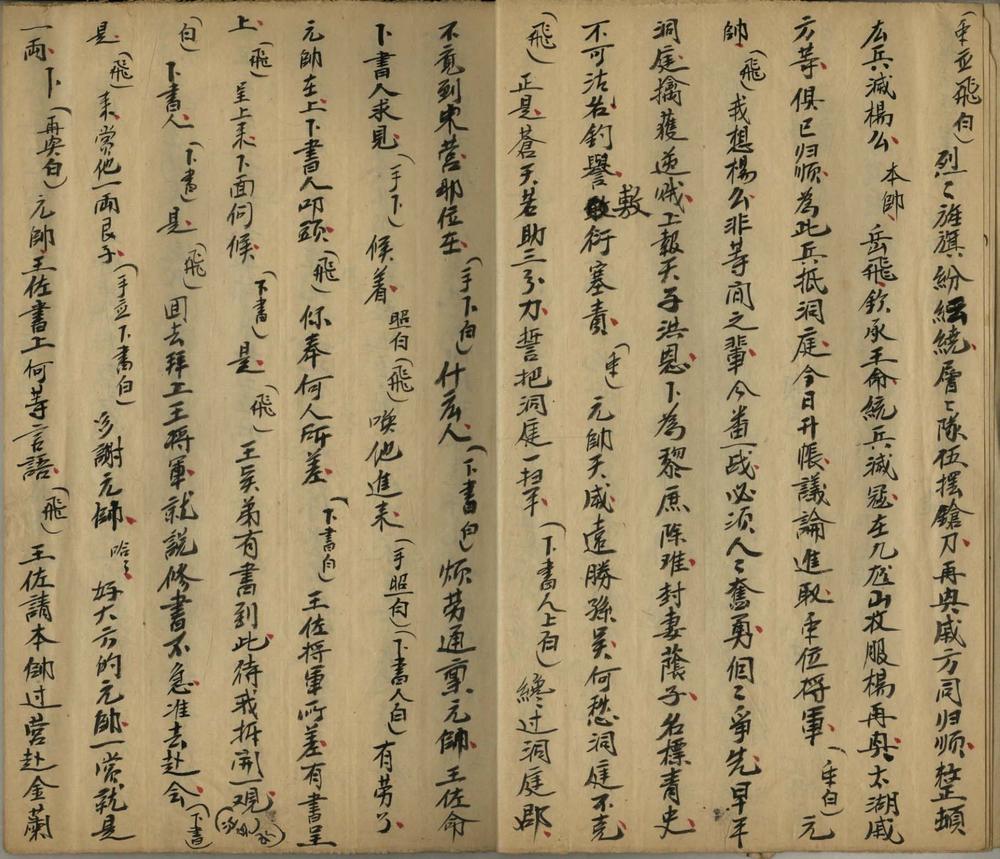 (众並飛白)烈〻旌旗紛紛繞層〻隊伍擺鎗刀再興戚方同归顺整頓
広兵滅楊么 本帥 岳飛欽承王命統兵滅冦在九尨山收服楊再興太湖戚
方等俱已归顺為此兵抵洞庭今日升帳議論進取众位将軍(众白)元
帥(飛)我想楊么非等闲之輩今番一战必须人〻奮勇個〻爭先早平
洞庭擒獲逆賊上報天子洪恩下為黎庶除难封妻蔭子名標青史
不可沽名釣譽敷衍塞責(众)元帥天威遠勝孫吳何愁洞庭不克
(飛)正是蒼天若助三分力誓把洞庭一扫平(下書人上白)纔过洞庭郡
不竟到宋营那位在(手下白)什広人(下書白)烦劳通禀元帥王佐命
下書人求見(手下)候着 照白(飛)喚他進来(手照白)(下書人白)有劳了
元帥在上下書人叩頭(飛)你奉何人所差(下書白)王佐将軍所差有書呈
上(飛)呈上来下面伺候(下書)是(飛)王矣弟有書到此待我拆開一观
白)下書人(下書)是(飛)回去拜上王将軍就説修書不急准去赴会(下書)
是(飛)来賞他一両艮子(手並下書白)多謝元帥 哈〻好大方的元帥一賞就是
一両下(再興白)元帥王佐書上何等言語(飛)王佐請本帥过营赴金蘭